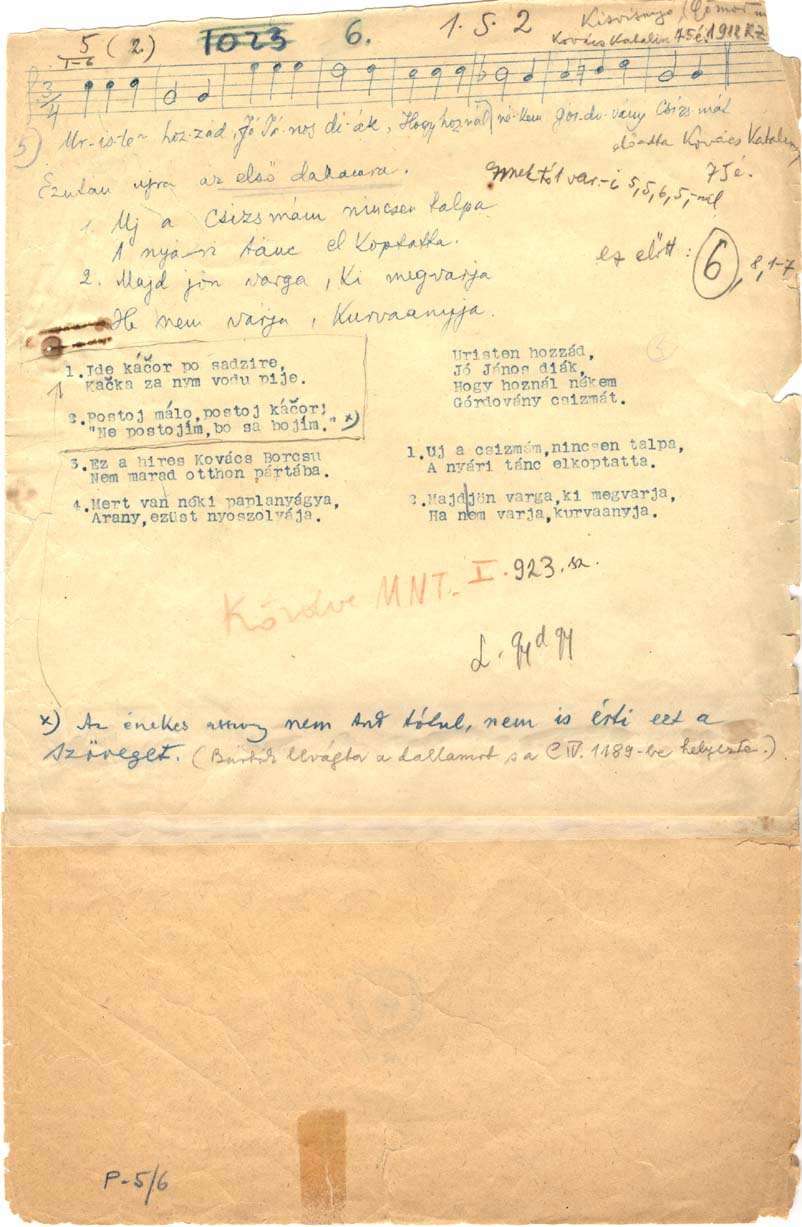 5 (2.) 1023 6. 1. 5. 2 Kisvisnyó (Gömör m
I-6 Kovács Katalin 75é. 1912 KZ
3/4
5) Ur-is-ten hoz-zád, Jó Já-nos di-ák, Hogy hoznál né-kem gór-do-vány csizs-mát
előadta Kovács Katalin
75é.
Ezután ujra az első dallamra.
ennek több var-i 5,5,6,5,-nél
1. Uj a csizsmám nincsen talpa
A nyári tánc elkoptatta.
ez előtt: 6, 8, 1-7
2. Majd jön varga, ki megvarja
He nem várja, kurvaanyja.
1. Ide káčor po sadzire,
Kačka za nym vodu pije.
2. Postoj málo, postoj káčor!
"Ne postojím, bo sa bojím." x)
3. Ez a hires Kovács Borcsu
Nem marad otthon pártába.
4. Mert van néki paplanyágya,
Arany, ezüst nyoszolyája.
Uristen hozzád,
Jó János diák,
Hogy hoznál nékem
Górdovány csizmát.
1. Uj a csizmám, nincsen talpa,
A nyári tánc elkoptatta.
2. Majd jön varga, ki megvarja,
Ha nem varja, kurvaanyja.
MNT. I. 923. sz.
x) Az énekes asszony nem tud tótul, nem is érti ezt a
szöveget. (Bartók levágta a dallamot s a C IV. 1189-be helyezte.)
P-5/6